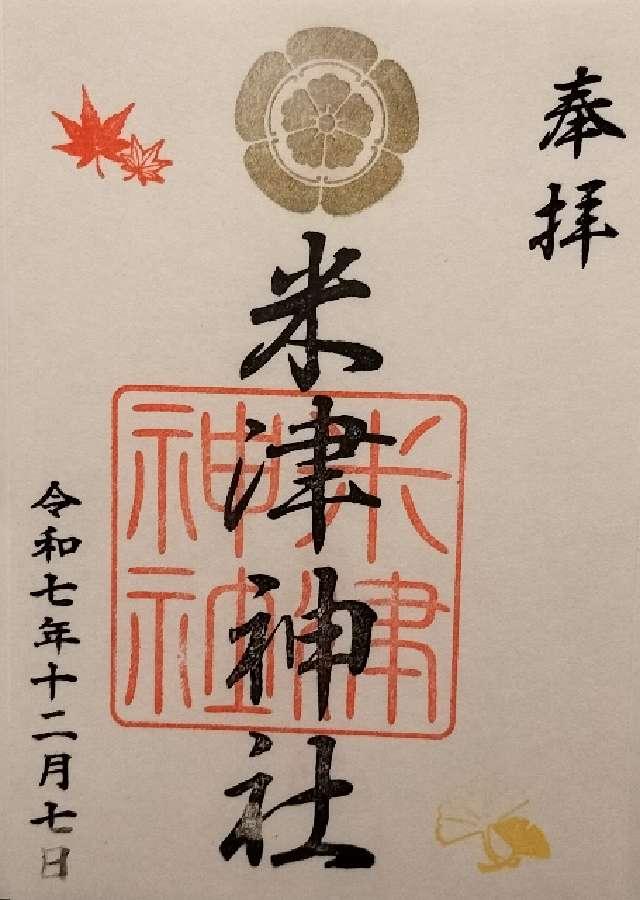 奉拝
米津神社
米津
神社
令和七年十二月七日